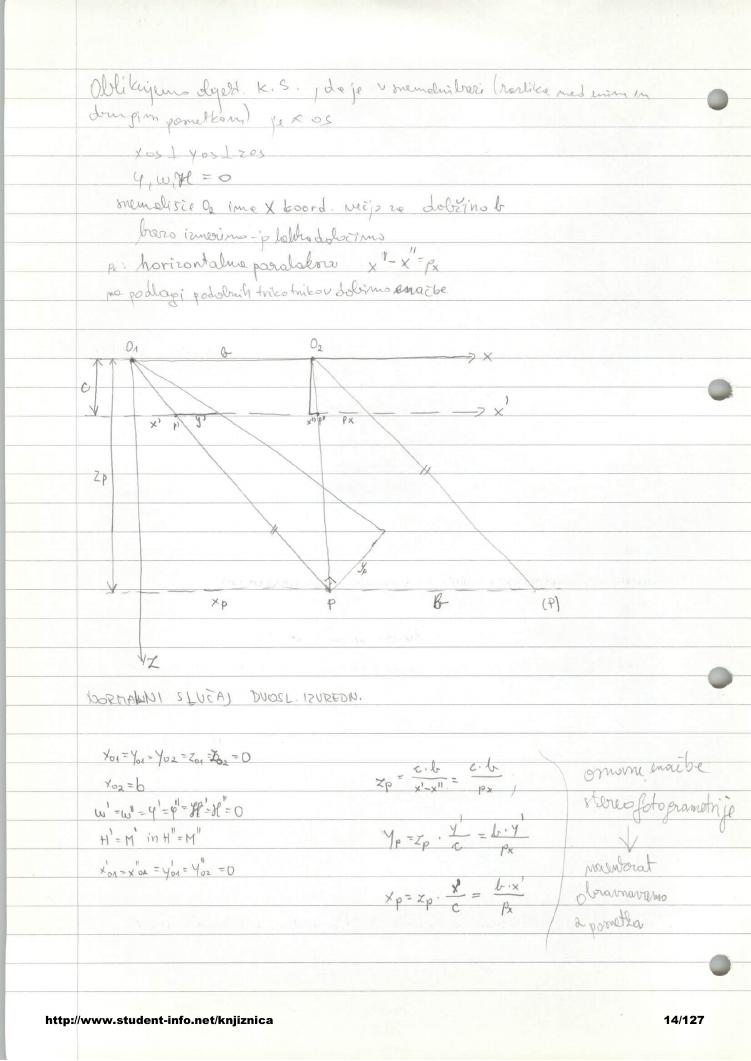 Oblikujemo objekt. K.S., da je v snemalni bazi (razlika med enim in
drugim posnetkom) je x os
x os ⊥ y os ⊥ z os
φ, ω, ϰ = 0
snemališče O₂ ima X koord. večjo za dolžino b
bazo izmerimo - jo lahko določimo
pₓ: horizontalna paralaksa x' - x'' = pₓ
na podlagi podobnih trikotnikov dobimo enačbe
O₁ b O₂ x
c
x' p' y' x'' p'' px x'
Zp
yp
xp P B (P)
Z
NORMALNI SLUČAJ DVOSL. IZVREDN.
x₀₁ = y₀₁ = y₀₂ = z₀₁ = z₀₂ = 0
x₀₂ = b
ω' = ω'' = φ' = φ'' = ϰ' = ϰ'' = 0
H' = M' in H'' = M''
x'₀₁ = x''₀₂ = y'₀₁ = y''₀₂ = 0
zp = c·b / x'-x'' = c·b / px ;
yp = zp · y'/c = b·y' / px
xp = zp · x'/c = b·x' / px
osnovne enačbe
stereofotogrametrije
↓
naenkrat
obravnavamo
2 posnetka
http://www.student-info.net/knjiznica 14/127